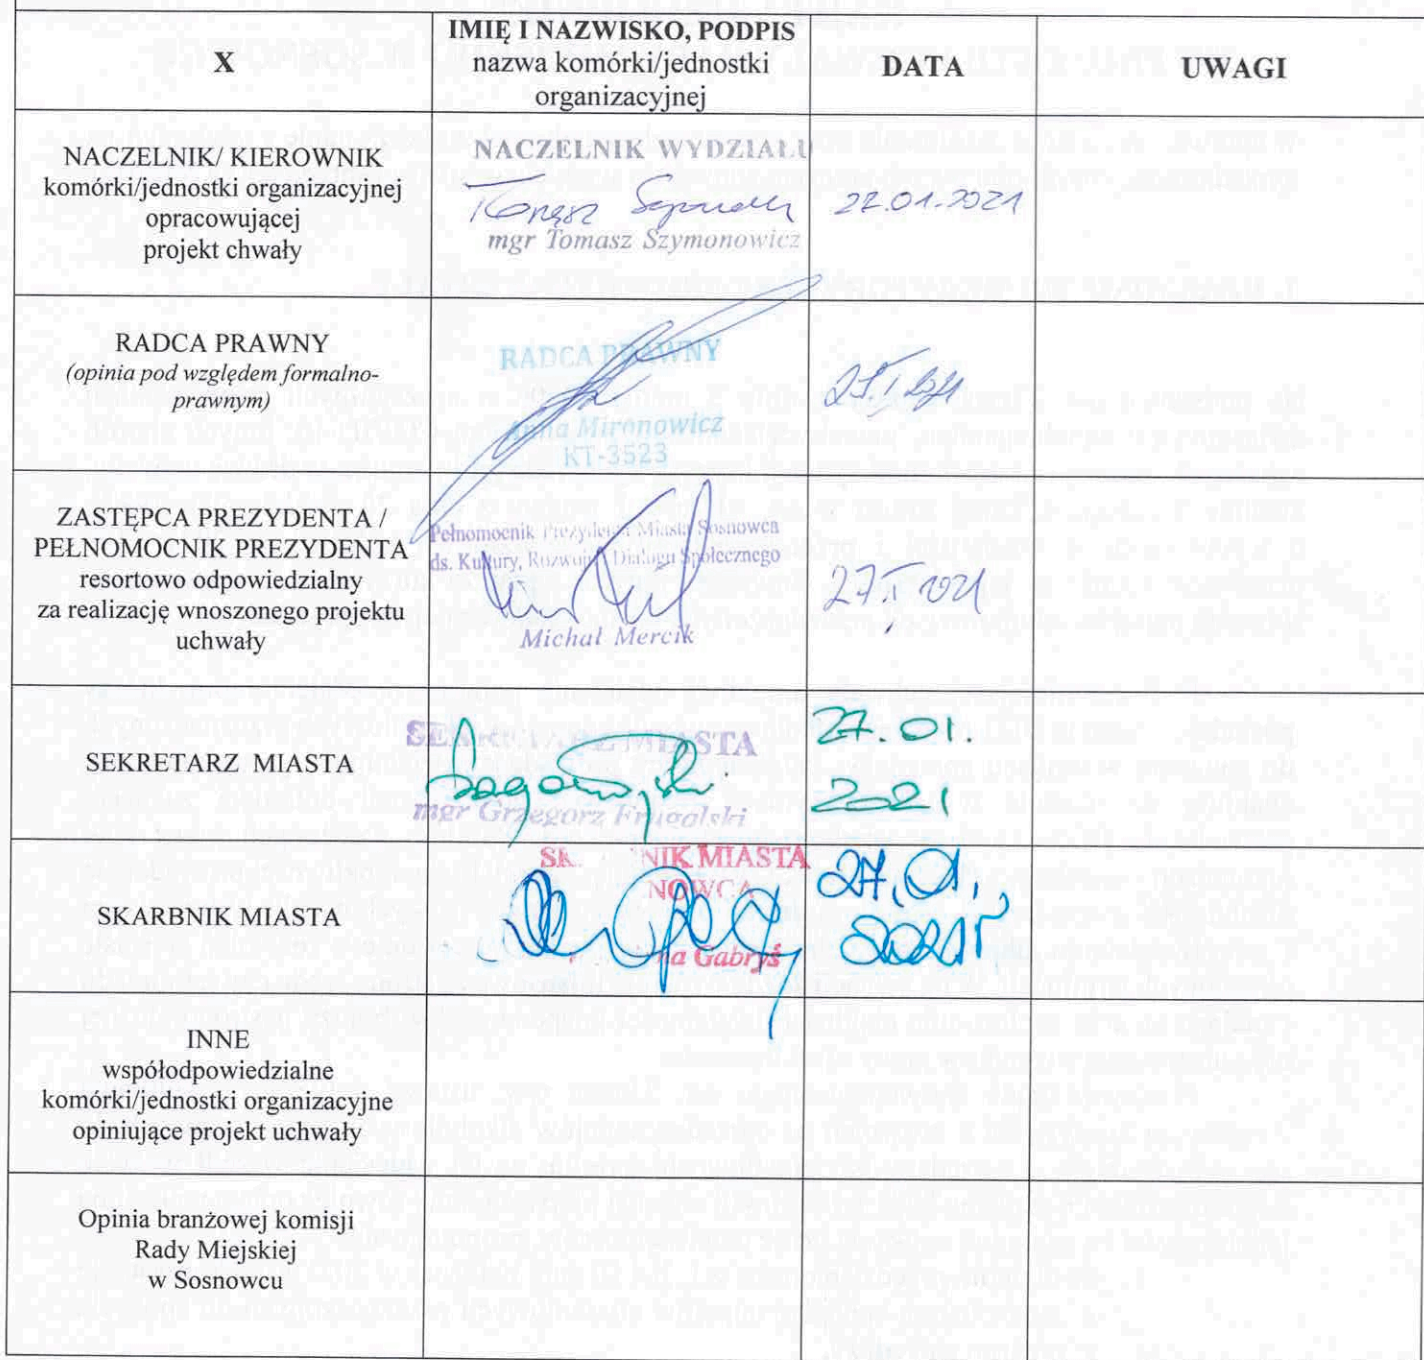 X
IMIĘ I NAZWISKO, PODPIS
nazwa komórki/jednostki
organizacyjnej
DATA
UWAGI
NACZELNIK/ KIEROWNIK
komórki/jednostki organizacyjnej
opracowującej
projekt chwały
NACZELNIK WYDZIAŁU
mgr Tomasz Szymonowicz
22.01.2021
RADCA PRAWNY
(opinia pod względem formalno-
prawnym)
RADCA PRAWNY
Anna Mironowicz
KT-3523
ZASTĘPCA PREZYDENTA /
PEŁNOMOCNIK PREZYDENTA
resortowo odpowiedzialny
za realizację wnoszonego projektu
uchwały
Pełnomocnik Prezydenta Miasta Sosnowca
ds. Kultury, Rozwoju i Dialogu Społecznego
Michał Mercik
27.I 2021
SEKRETARZ MIASTA
SEKRETARZ MIASTA
mgr Grzegorz Frugalski
27.01.
2021
SKARBNIK MIASTA
NIK MIASTA
NOWCA
na Gabryś
27.01.
2021r
INNE
współodpowiedzialne
komórki/jednostki organizacyjne
opiniujące projekt uchwały
Opinia branżowej komisji
Rady Miejskiej
w Sosnowcu